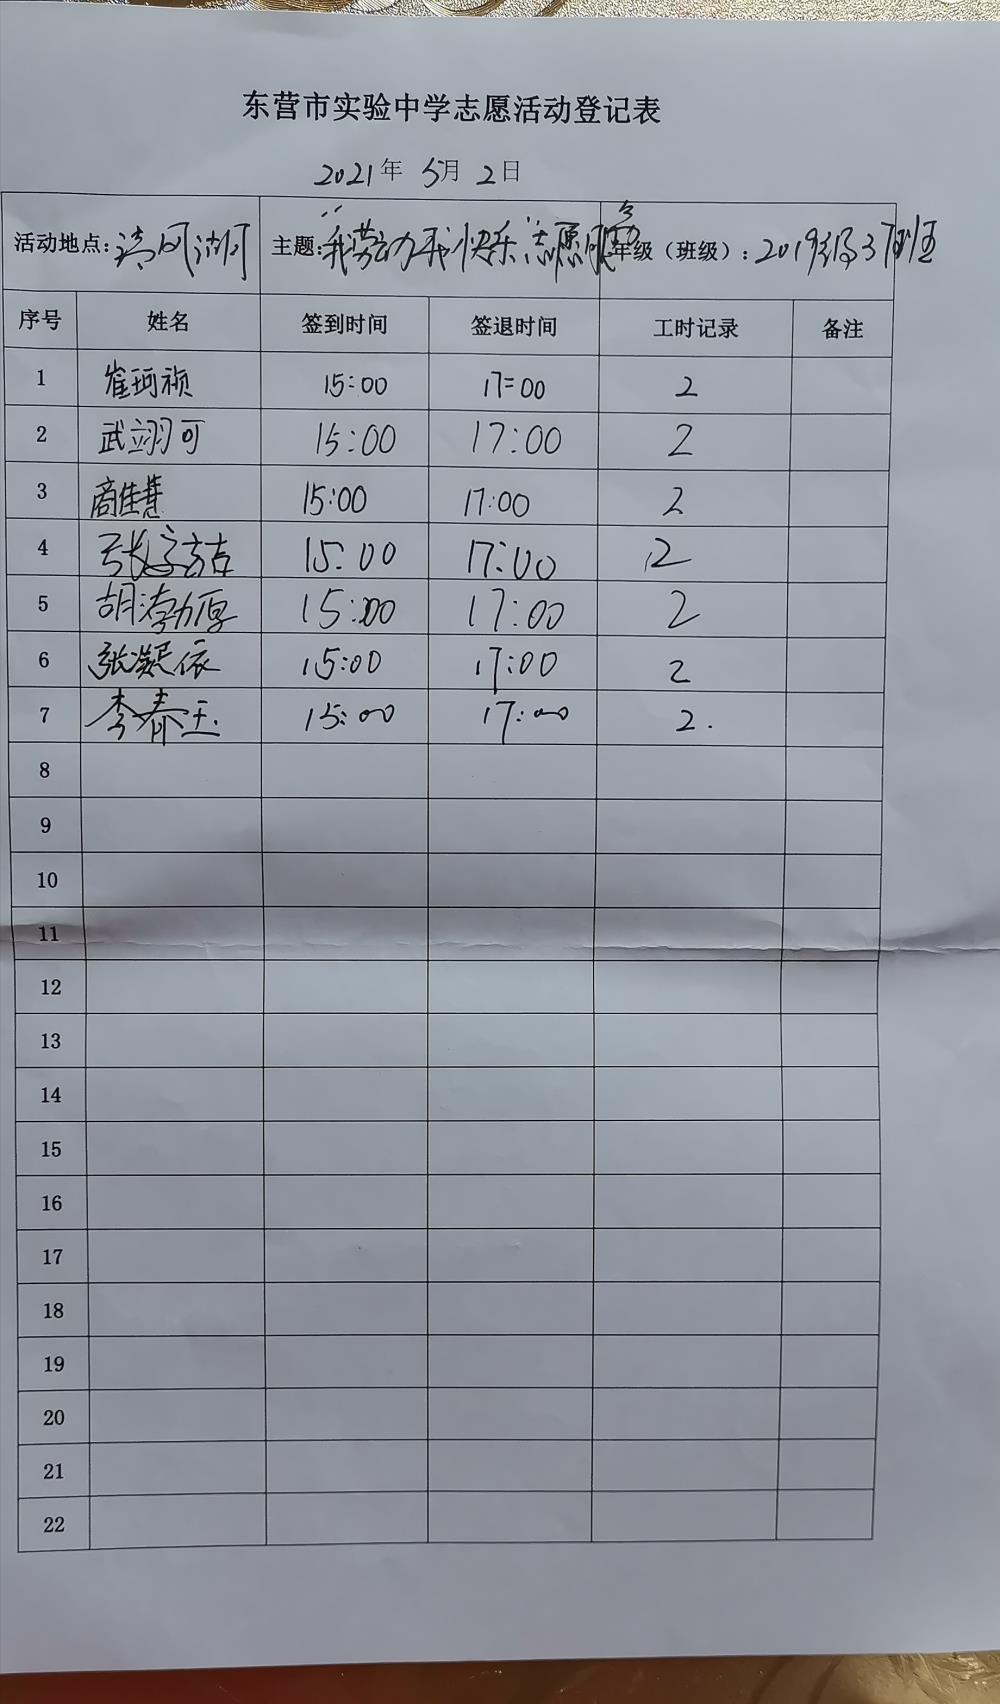 东营市实验中学志愿活动登记表
2021年 5月 2日
活动地点:清风湖 主题:"我劳动我快乐"志愿活动 年级(班级):2019级3班
序号 姓名 签到时间 签退时间 工时记录 备注
1 崔珂祯 15:00 17:00 2
2 武翊可 15:00 17:00 2
3 商佳慧 15:00 17:00 2
4 张 15:00 17:00 2
5 胡渤原 15:00 17:00 2
6 张 依 15:00 17:00 2
7 李春玉 15:00 17:00 2.
8
9
10
11
12
13
14
15
16
17
18
19
20
21
22